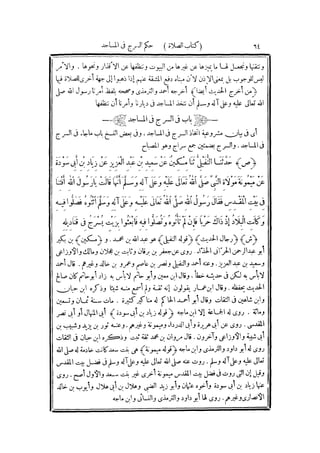 ٦٤ (كتاب الصلاة) حكم السرج فى المساجد
وتنقيتها وتجعل فيها ما يميزها عن غيرها من البيوت وتنظفها عن الأقذار ونحوها. والأمر
ليس للوجوب بل بمعنى الإذن لأن مبناه دفع المشقة عنهم إذا ذهبوا إلى جهة أخرى للصلاة فيها
﴿من أخرج الحديث أيضا﴾ أخرجه أحمد والترمذى وصححه بلفظ أمرنا رسول الله صلى
الله تعالى عليه وعلى آله وسلم أن نتخذ المساجد فى ديارنا وأمرنا أن ننظفها
باب فى السرج فى المساجد
أى فى بيان مشروعية اتخاذ السرج فى المساجد. وفى بعض النسخ باب ماجاء فى السرج
فى المساجد. والسرج بضمتين جمع سراج وهو المصباح
﴿ص﴾ حَدَّثَنَا النُّفَيْلِىُّ ثَنَا مِسْكِينٌ عَنْ سَعِيدِ بْنِ عَبْدِ الْعَزِيزِ عَنْ زِيَادِ بْنِ أَبِى سَوْدَةَ
عَنْ مَيْمُونَةَ مَوْلَاةِ النَّبِىِّ صَلَّى اللهُ تَعَالَى عَلَيْهِ وَعَلَى آلِهِ وَسَلَّمَ أَنَّهَا قَالَتْ يَارَسُولَ اللهِ أَفْتِنَا
فِى بَيْتِ الْمَقْدِسِ فَقَالَ رَسُولُ اللهِ صَلَّى اللهُ تَعَالَى عَلَيْهِ وَعَلَى آلِهِ وَسَلَّمَ اثْتُوهُ فَصَلُّوا فِيهِ
وَكَانَتِ الْبِلَادُ إِذْ ذَاكَ حَرْبًا فَإِنْ لَمْ تَأْتُوهُ وَتُصَلُّوا فِيهِ فَابْعَثُوا بِزَيْتٍ يُسْرَجُ فِى قَنَادِيلِهِ
﴿ش﴾ ﴿رجال الحديث﴾ ﴿قوله النفيلى﴾ هو عبد الله بن محمد. و﴿مسكين﴾ بن بكير
أبو عبد الرحمن الحرانى الحذاء. روى عن جعفر بن برقان وثابت بن عجلان ومالك والأوزاعى
وسعيد بن عبد العزيز. وعنه أحمد والنفيلى ونصر بن عاصم وعمرو بن خالد وغيرهم. قال أحمد
لابأس به لكن فى حديثه خطأ. وقال ابن معين وأبو حاتم لابأس به زاد أبو حاتم كان صالح
الحديث يحفظه. وقال ابن عمار يقولون إنه ثقة ولم أسمع منه شيئا وذكره ابن حبان
وابن شاهين فى الثقات وقال أبو أحمد الحاكم له مناكير كثيرة. مات سنة ثمان وتسعين
ومائة. روى له الجماعة إلا ابن ماجه ﴿قوله زياد بن أبى سودة﴾ أبى المنهال أو أبى نصر
المقدسى. روى عن أبى هريرة وأبى الدرداء وميمونة وغيرهم. وعنه ثور بن يزيد وشبيب بن
أبى شيبة والأوزاعى وآخرون. قال مروان بن محمد ثقة ثبت وذكره ابن حبان فى الثقات
روى له أبو داود والترمذى وابن ماجه ﴿قوله ميمونة﴾ هى بنت سعد كانت خادمة له صلى الله
تعالى عليه وعلى آله وسلم. روت عنه صلى الله تعالى عليه وعلى آله وسلم فى فضل بيت المقدس
وقيل إن التى روت فى فضل بيت المقدس ميمونة أخرى غير بنت سعد والأول أصح. روى
عنها زياد بن أبى سودة وأخوه عثمان وأبو يزيد الضبى وهلال بن أبى هلال وأيوب بن خالد
الأنصارى وغيرهم. روى لها أبو داود والترمذى والنسائى وابن ماجه